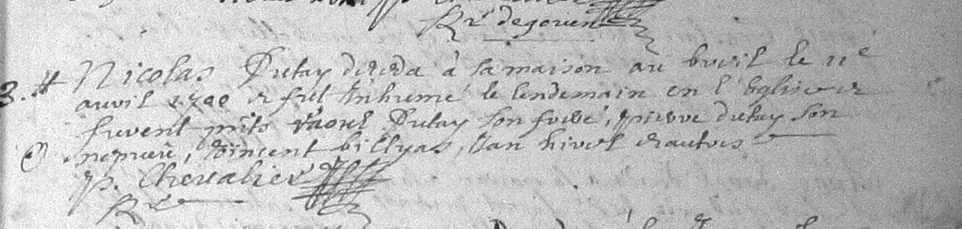 Rr degoven
3. # Nicolas Dutay déceda à sa maison au breil le 11e
avvil 1700 et fut Inhumé le lendemain en l'église et
fuvent pnts Raoul Dutay son fveve, pievve dutay son
nepueu, vincent billyas, Jan hivel et autves
p. Chevalier
Rr